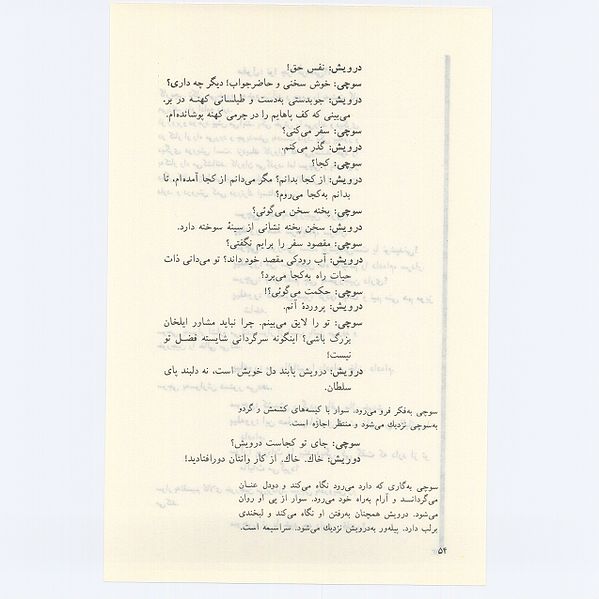 درویش: نفس حق!
سوچی: خوش سخنی و حاضرجواب! دیگر چه داری؟
درویش: چوبدستی به‌دست و طیلسانی کهنـه در بر.
می‌بینی که کف پاهایم را در چرمی کهنه پوشانده‌ام.
سوچی: سفر می‌کنی؟
درویش: گذر می‌کنم.
سوچی: کجا؟
درویش: از کجا بدانم؟ مگر می‌دانم از کجا آمده‌ام، تا
بدانم به‌کجا می‌روم؟
سوچی: پخته سخن می‌گوئی؟
درویش: سخن پخته نشانی از سینهٔ سوخته دارد.
سوچی: مقصود سفر را برایم نگفتی؟
درویش: آب رودکی مقصد خود داند؟ تو می‌دانی ذات
حیات راه به‌کجا می‌برد؟
سوچی: حکمت می‌گوئی؟!
درویش: پروردهٔ آنم.
سوچی: تو را لایق می‌بینم. چرا نباید مشاور ایلخان
بزرگ باشی؟ اینگونه سرگردانی شایسته فضـل تو
نیست!
درویش: درویش پابند دل خویش است، نه دلبند پای
سلطان.
سوچی به‌فکر فرو می‌رود. سوار با کیسه‌های کشمش و گردو
به‌سوچی نزدیك می‌شود و منتظر اجازه است.
سوچی: جای تو کجاست درویش؟
دوریش: خاك. خاك. از کار وانتان دورافتادید!
سوچی به‌گاری که دارد می‌رود نگاه می‌کند و دودل عنـان
می‌گردانـد و آرام به‌راه خود می‌رود. سوار از پی او روان
می‌شود. درویش همچنان به‌رفتن او نگاه می‌کند و لبخندی
برلب دارد. پیله‌ور به‌درویش نزدیك می‌شود. سراسیمه است.
۵۴